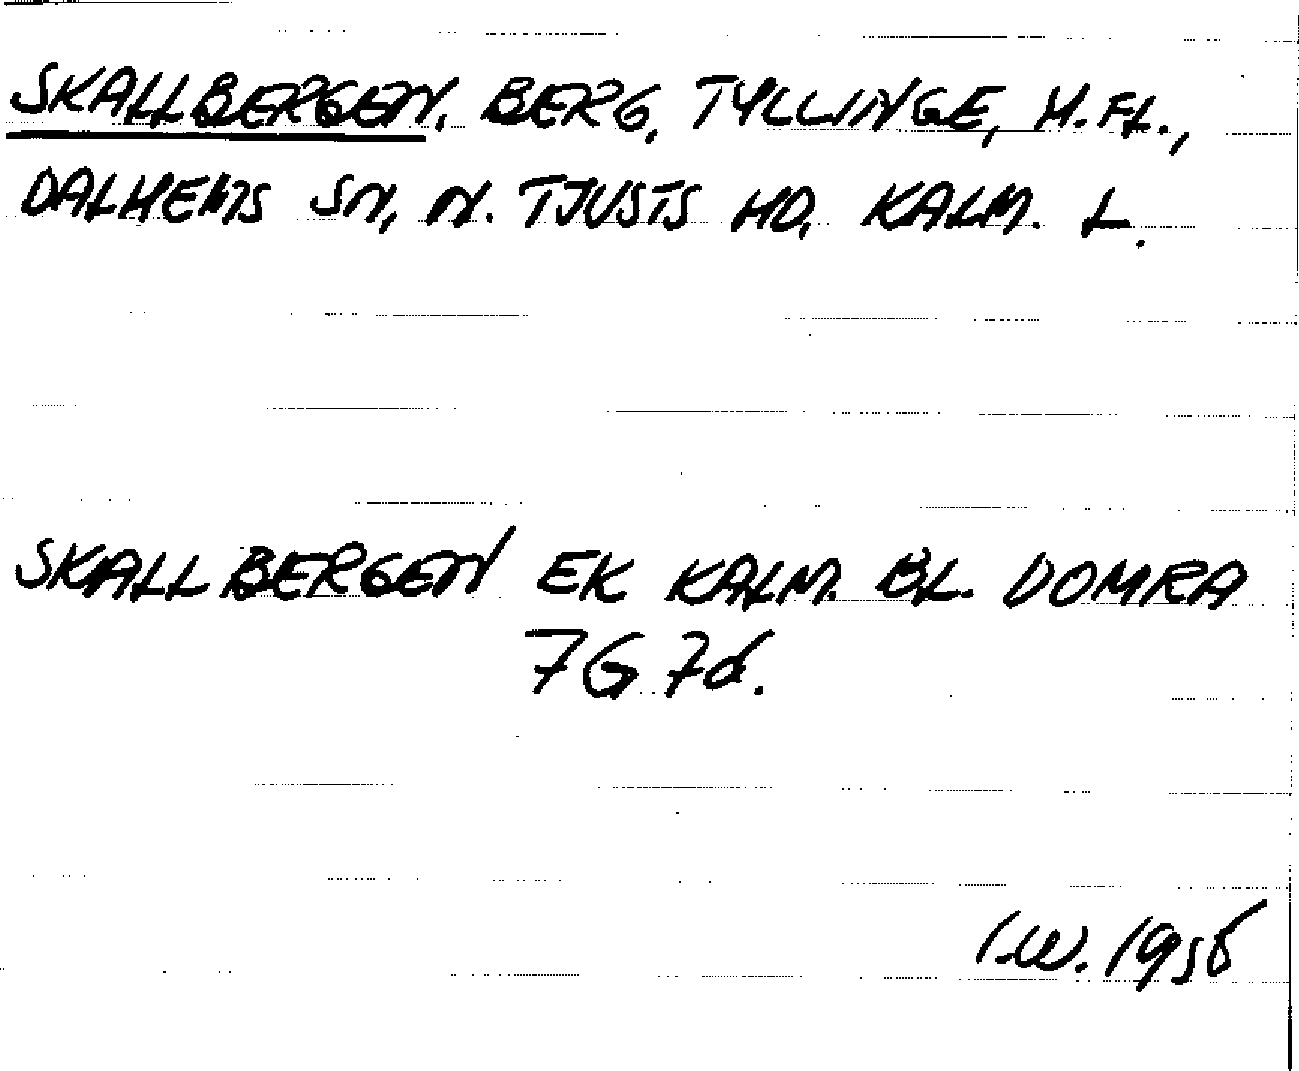 SKALLBERGEN, BERG, TYLLINGE, H.FL.,
DALHEMS SN, N. TJUSTS HD, KALM. L.
SKALLBERGEN EK KALM. BL. DOMRA
7G 7d.
I.W. 1956